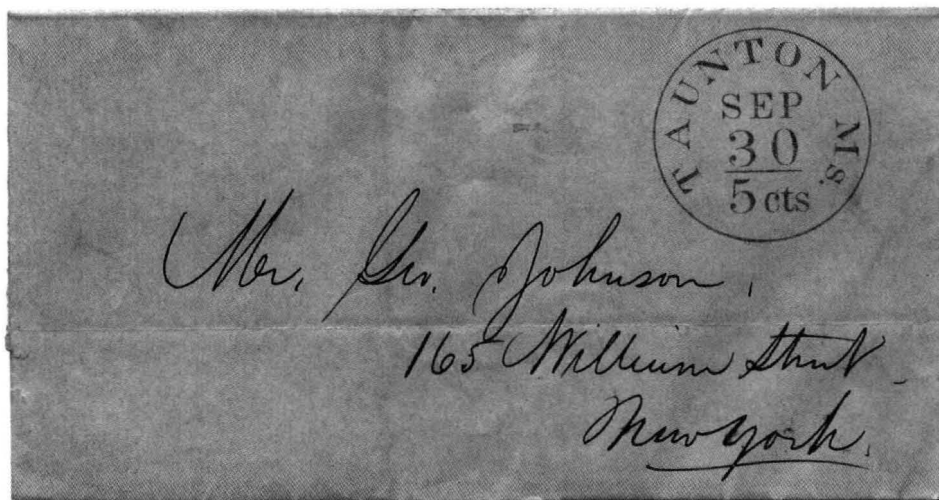 TAUNTON Ms.
SEP
30
5 cts
Mr. Geo. Johnson,
165 William Street
New York.